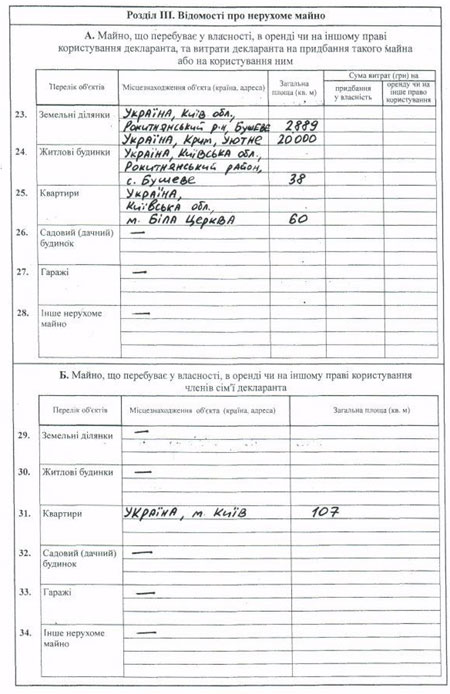 Розділ III. Відомості про нерухоме майно
А. Майно, що перебуває у власності, в оренді чи на іншому праві
користування декларанта, та витрати декларанта на придбання такого майна
або на користування ним
Перелік об'єктів
Місцезнаходження об'єкта (країна, адреса)
Загальна
площа (кв. м)
Сума витрат (грн) на
придбання
у власність
оренду чи на
інше право
користування
23. Земельні ділянки
Україна, Київ обл.,
Рокитнянський р-н, Бушеве 2889
Україна, Крим, Уютне 20000
24. Житлові будинки
Україна, Київська обл.,
Рокитнянський район,
с. Бушеве 38
25. Квартири
Україна,
Київська обл.,
м. Біла Церква 60
26. Садовий (дачний)
будинок
—
27. Гаражі —
28. Інше нерухоме
майно
—
Б. Майно, що перебуває у власності, в оренді чи на іншому праві користування
членів сім'ї декларанта
Перелік об'єктів
Місцезнаходження об'єкта (країна, адреса)
Загальна площа (кв. м)
29. Земельні ділянки —
30. Житлові будинки —
31. Квартири Україна, м. Київ 107
32. Садовий (дачний)
будинок
—
33. Гаражі —
34. Інше нерухоме
майно
—